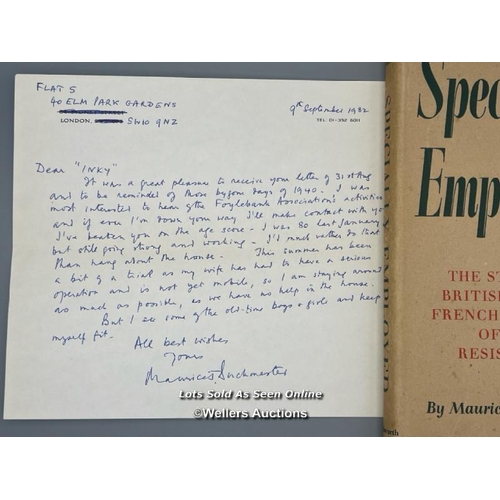 FLAT 5
40 ELM PARK GARDENS
LONDON, SW10 9NZ
9th September 1982
TEL 01-352 8011
Dear "INKY"
It was a great pleasure to receive your letter of 31st Aug
and to be reminded of those bygone days of 1940. I was
most interested to hear of the Foylebank Association's activities
and if ever I'm down your way I'll make contact with you
I've beaten you on the age score - I was 80 last January
but still going strong and working - I'd much rather do that
than hang about the house. This summer has been
a bit of a trial as my wife has had to have a serious
operation and is not yet mobile, so I am staying around
as much as possible, as we have no help in the house.
But I see some of the old-time boys & girls and keep
myself fit.
All best wishes
Yours
Maurice J. Buckmaster
SPECIALLY EMPLOYED
Spec
Emp
THE ST
BRITISH
FRENCH
OF
RESIS
By Mauric
Lots Sold As Seen Online
©Wellers Auctions